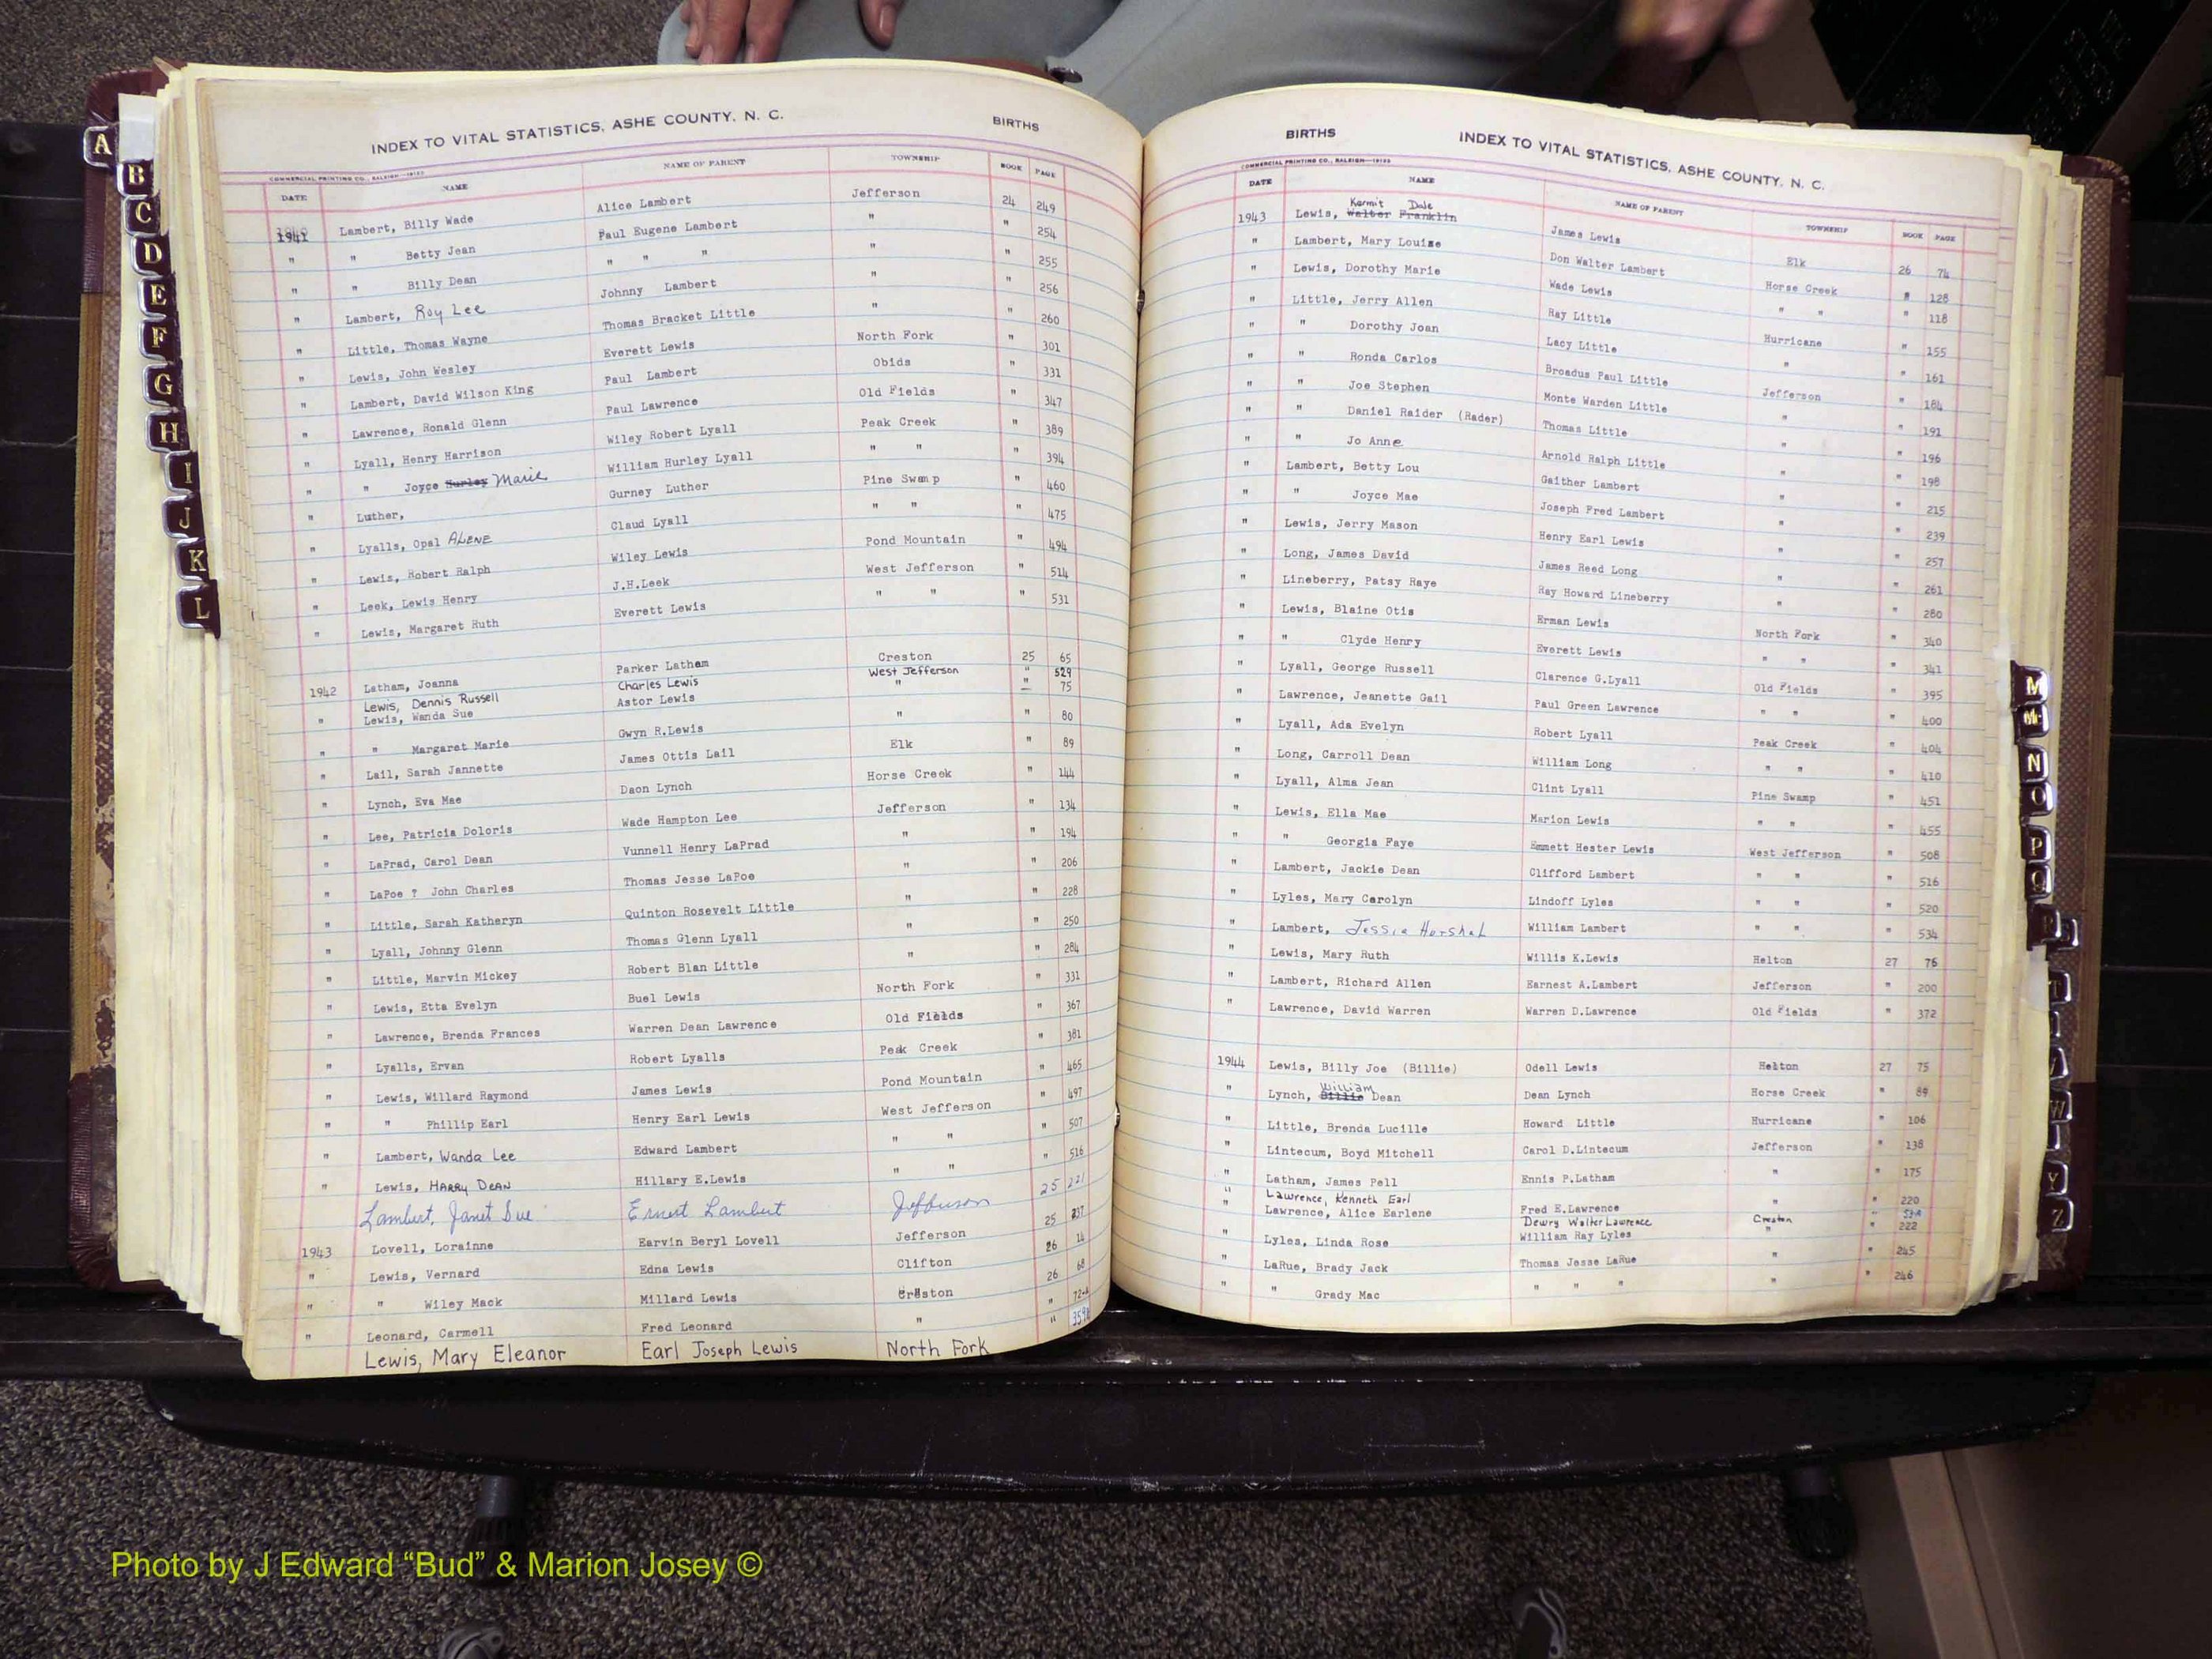 INDEX TO VITAL STATISTICS, ASHE COUNTY, N. C. BIRTHS
COMMERCIAL PRINTING CO., RALEIGH
DATE NAME NAME OF PARENT TOWNSHIP BOOK PAGE
1941 Lambert, Billy Wade Alice Lambert Jefferson 24 249
" " Betty Jean Paul Eugene Lambert " " 254
" " Billy Dean " " " " " 255
" Lambert, Roy Lee Johnny Lambert " " 256
" Little, Thomas Wayne Thomas Bracket Little " " 260
" Lewis, John Wesley Everett Lewis North Fork " 301
" Lambert, David Wilson King Paul Lambert Obids " 331
" Lawrence, Ronald Glenn Paul Lawrence Old Fields " 347
" Lyall, Henry Harrison Wiley Robert Lyall Peak Creek " 389
" " Joyce Hurley Marie William Hurley Lyall " " " 394
" Luther, Gurney Luther Pine Swamp " 460
" Lyalls, Opal ALENE Claud Lyall " " " 475
" Lewis, Robert Ralph Wiley Lewis Pond Mountain " 494
" Leek, Lewis Henry J.H.Leek West Jefferson " 514
" Lewis, Margaret Ruth Everett Lewis " " " 531
1942 Latham, Joanna Parker Latham Creston 25 65
Lewis, Dennis Russell Charles Lewis West Jefferson " 529
" Lewis, Wanda Sue Astor Lewis " " 75
" " Margaret Marie Gwyn R.Lewis " " 80
" Lail, Sarah Jannette James Ottis Lail Elk " 89
" Lynch, Eva Mae Daon Lynch Horse Creek " 144
" Lee, Patricia Doloris Wade Hampton Lee Jefferson " 134
" LaPrad, Carol Dean Vunnell Henry LaPrad " " 194
" LaPoe ? John Charles Thomas Jesse LaPoe " " 206
" Little, Sarah Katheryn Quinton Rosevelt Little " " 228
" Lyall, Johnny Glenn Thomas Glenn Lyall " " 250
" Little, Marvin Mickey Robert Blan Little " " 284
" Lewis, Etta Evelyn Buel Lewis North Fork " 331
" Lawrence, Brenda Frances Warren Dean Lawrence Old Fields " 367
" Lyalls, Ervan Robert Lyalls Peak Creek " 381
" Lewis, Willard Raymond James Lewis Pond Mountain " 465
" " Phillip Earl Henry Earl Lewis West Jefferson " 497
" Lambert, Wanda Lee Edward Lambert " " " 507
" Lewis, HARRY DEAN Hillary E.Lewis " " " 516
Lambert, Janet Sue Ernest Lambert Jefferson 25 221
1943 Lovell, Lorainne Earvin Beryl Lovell Jefferson 25 237
" Lewis, Vernard Edna Lewis Clifton 26 14
" " Wiley Mack Millard Lewis Creston 26 68
" Leonard, Carmell Fred Leonard " "
Lewis, Mary Eleanor Earl Joseph Lewis North Fork "
BIRTHS INDEX TO VITAL STATISTICS, ASHE COUNTY, N. C.
COMMERCIAL PRINTING CO., RALEIGH
DATE NAME NAME OF PARENT TOWNSHIP BOOK PAGE
Kermit Dale
1943 Lewis, Walter Franklin James Lewis Elk 26 74
" Lambert, Mary Louise Don Walter Lambert Horse Creek " 128
" Lewis, Dorothy Marie Wade Lewis " " " 118
" Little, Jerry Allen Ray Little Hurricane " 155
" " Dorothy Joan Lacy Little " " 161
" " Ronda Carlos Broadus Paul Little Jefferson " 184
" " Joe Stephen Monte Warden Little " " 191
" " Daniel Raider (Rader) Thomas Little " " 196
" " Jo Anne Arnold Ralph Little " " 198
" Lambert, Betty Lou Gaither Lambert " " 215
" " Joyce Mae Joseph Fred Lambert " " 239
" Lewis, Jerry Mason Henry Earl Lewis " " 257
" Long, James David James Reed Long " " 261
" Lineberry, Patsy Raye Ray Howard Lineberry " " 280
" Lewis, Blaine Otis Erman Lewis North Fork " 340
" " Clyde Henry Everett Lewis " " " 341
" Lyall, George Russell Clarence G.Lyall Old Fields " 395
" Lawrence, Jeanette Gail Paul Green Lawrence " " " 400
" Lyall, Ada Evelyn Robert Lyall Peak Creek " 404
" Long, Carroll Dean William Long " " " 410
" Lyall, Alma Jean Clint Lyall Pine Swamp " 451
" Lewis, Ella Mae Marion Lewis " " " 455
" " Georgia Faye Emmett Hester Lewis West Jefferson " 508
" Lambert, Jackie Dean Clifford Lambert " " " 516
" Lyles, Mary Carolyn Lindoff Lyles " " " 520
" Lambert, Jessie Hershel William Lambert " " " 534
" Lewis, Mary Ruth Willis K.Lewis Helton 27 76
" Lambert, Richard Allen Earnest A.Lambert Jefferson " 200
" Lawrence, David Warren Warren D.Lawrence Old Fields " 372
1944 Lewis, Billy Joe (Billie) Odell Lewis Helton 27 75
William
" Lynch, Billie Dean Dean Lynch Horse Creek " 89
" Little, Brenda Lucille Howard Little Hurricane " 106
" Lintecum, Boyd Mitchell Carol D.Lintecum Jefferson " 138
" Latham, James Pell Ennis P.Latham " " 175
" Lawrence, Kenneth Earl Dewry Walter Lawrence Creston "
" Lawrence, Alice Earlene Fred E.Lawrence " " 220
" Lyles, Linda Rose William Ray Lyles " " 222
" LaRue, Brady Jack Thomas Jesse LaRue " " 245
" " Grady Mac " " " " " 246
A
B
C
D
E
F
G
H
I
J
K
L
M
Mc
N
O
P
Q
R
T
W
Y
Z
Photo by J Edward “Bud” & Marion Josey ©